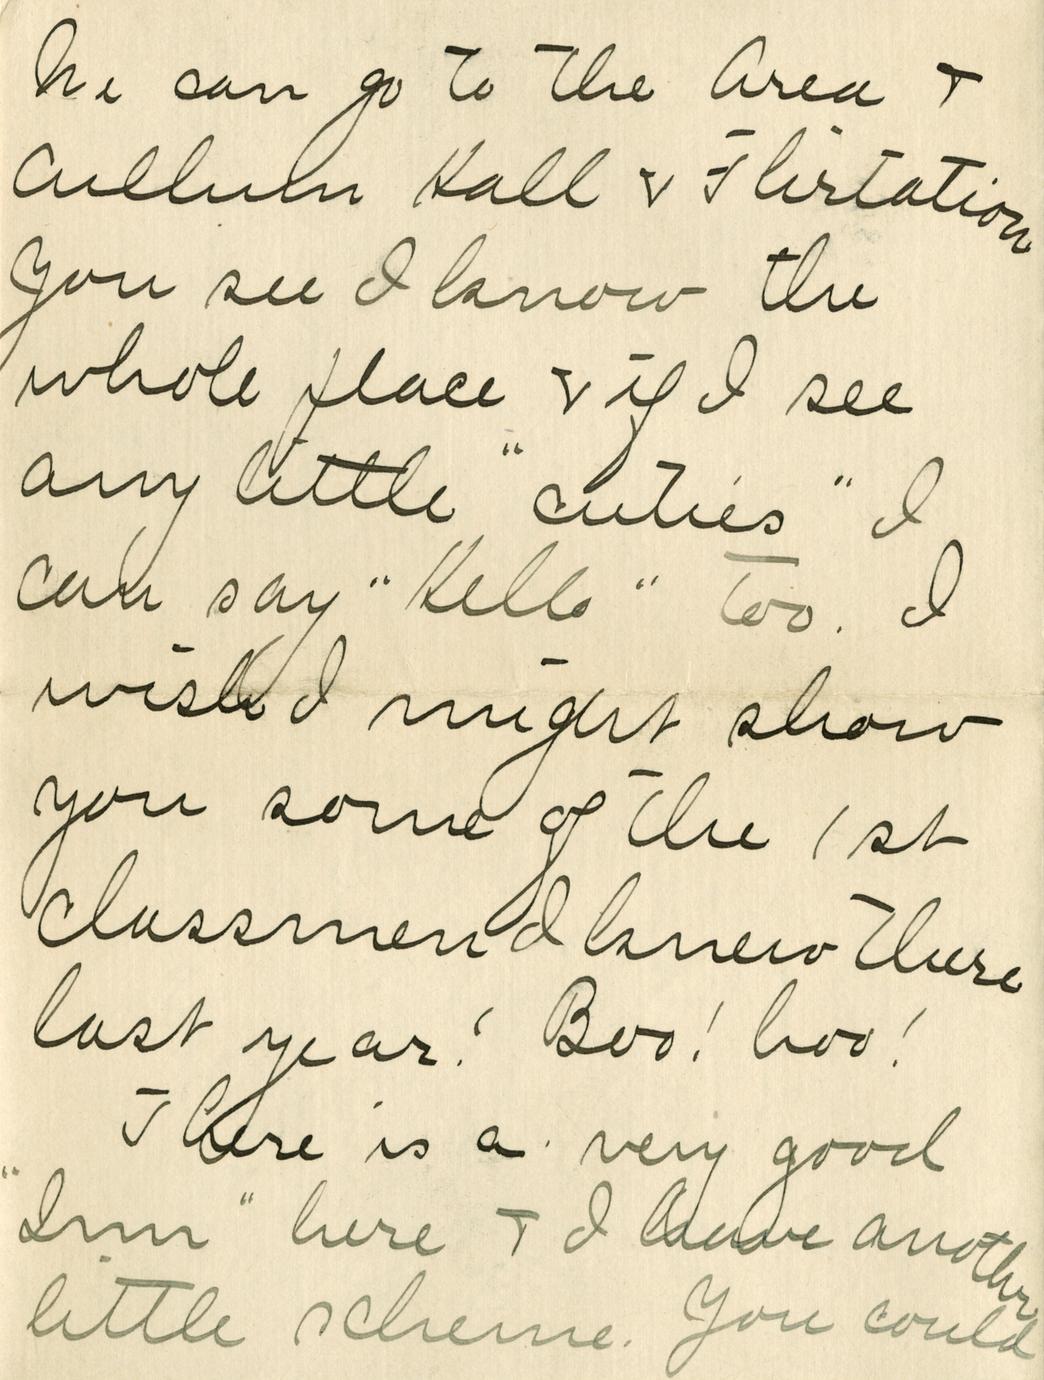 he can go to the Area &
Cullum Hall & Flirtation
You see I know the
whole place & if I see
any little "cuties" I
can say "Hello" too. I
wish I might show
you some of the 1st
classmen I knew there
last year! Boo! hoo!
There is a very good
"Inn" here & I have another
little scheme. You could